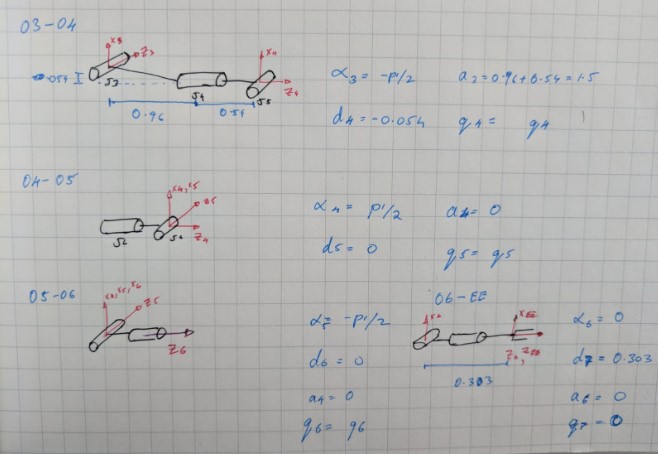 03-04
x3
z3
x4
0.054
J3
J4
J5
z4
0.96
0.54
α3 = -pi/2 a2=0.96+0.54=1.5
d4 = -0.054 q4 = q4
04-05
x4, x5
z5
z4
J5
α4 = pi/2 a4= 0
d5 = 0 q5= q5
05-06
x4, x5, x6
z5
z6
α5= -pi/2
d6 = 0
a4= 0
q6= q6
06-EE
xEE
z6, zEE
0.303
α6 = 0
d7= 0.303
a6 = 0
q7 = 0